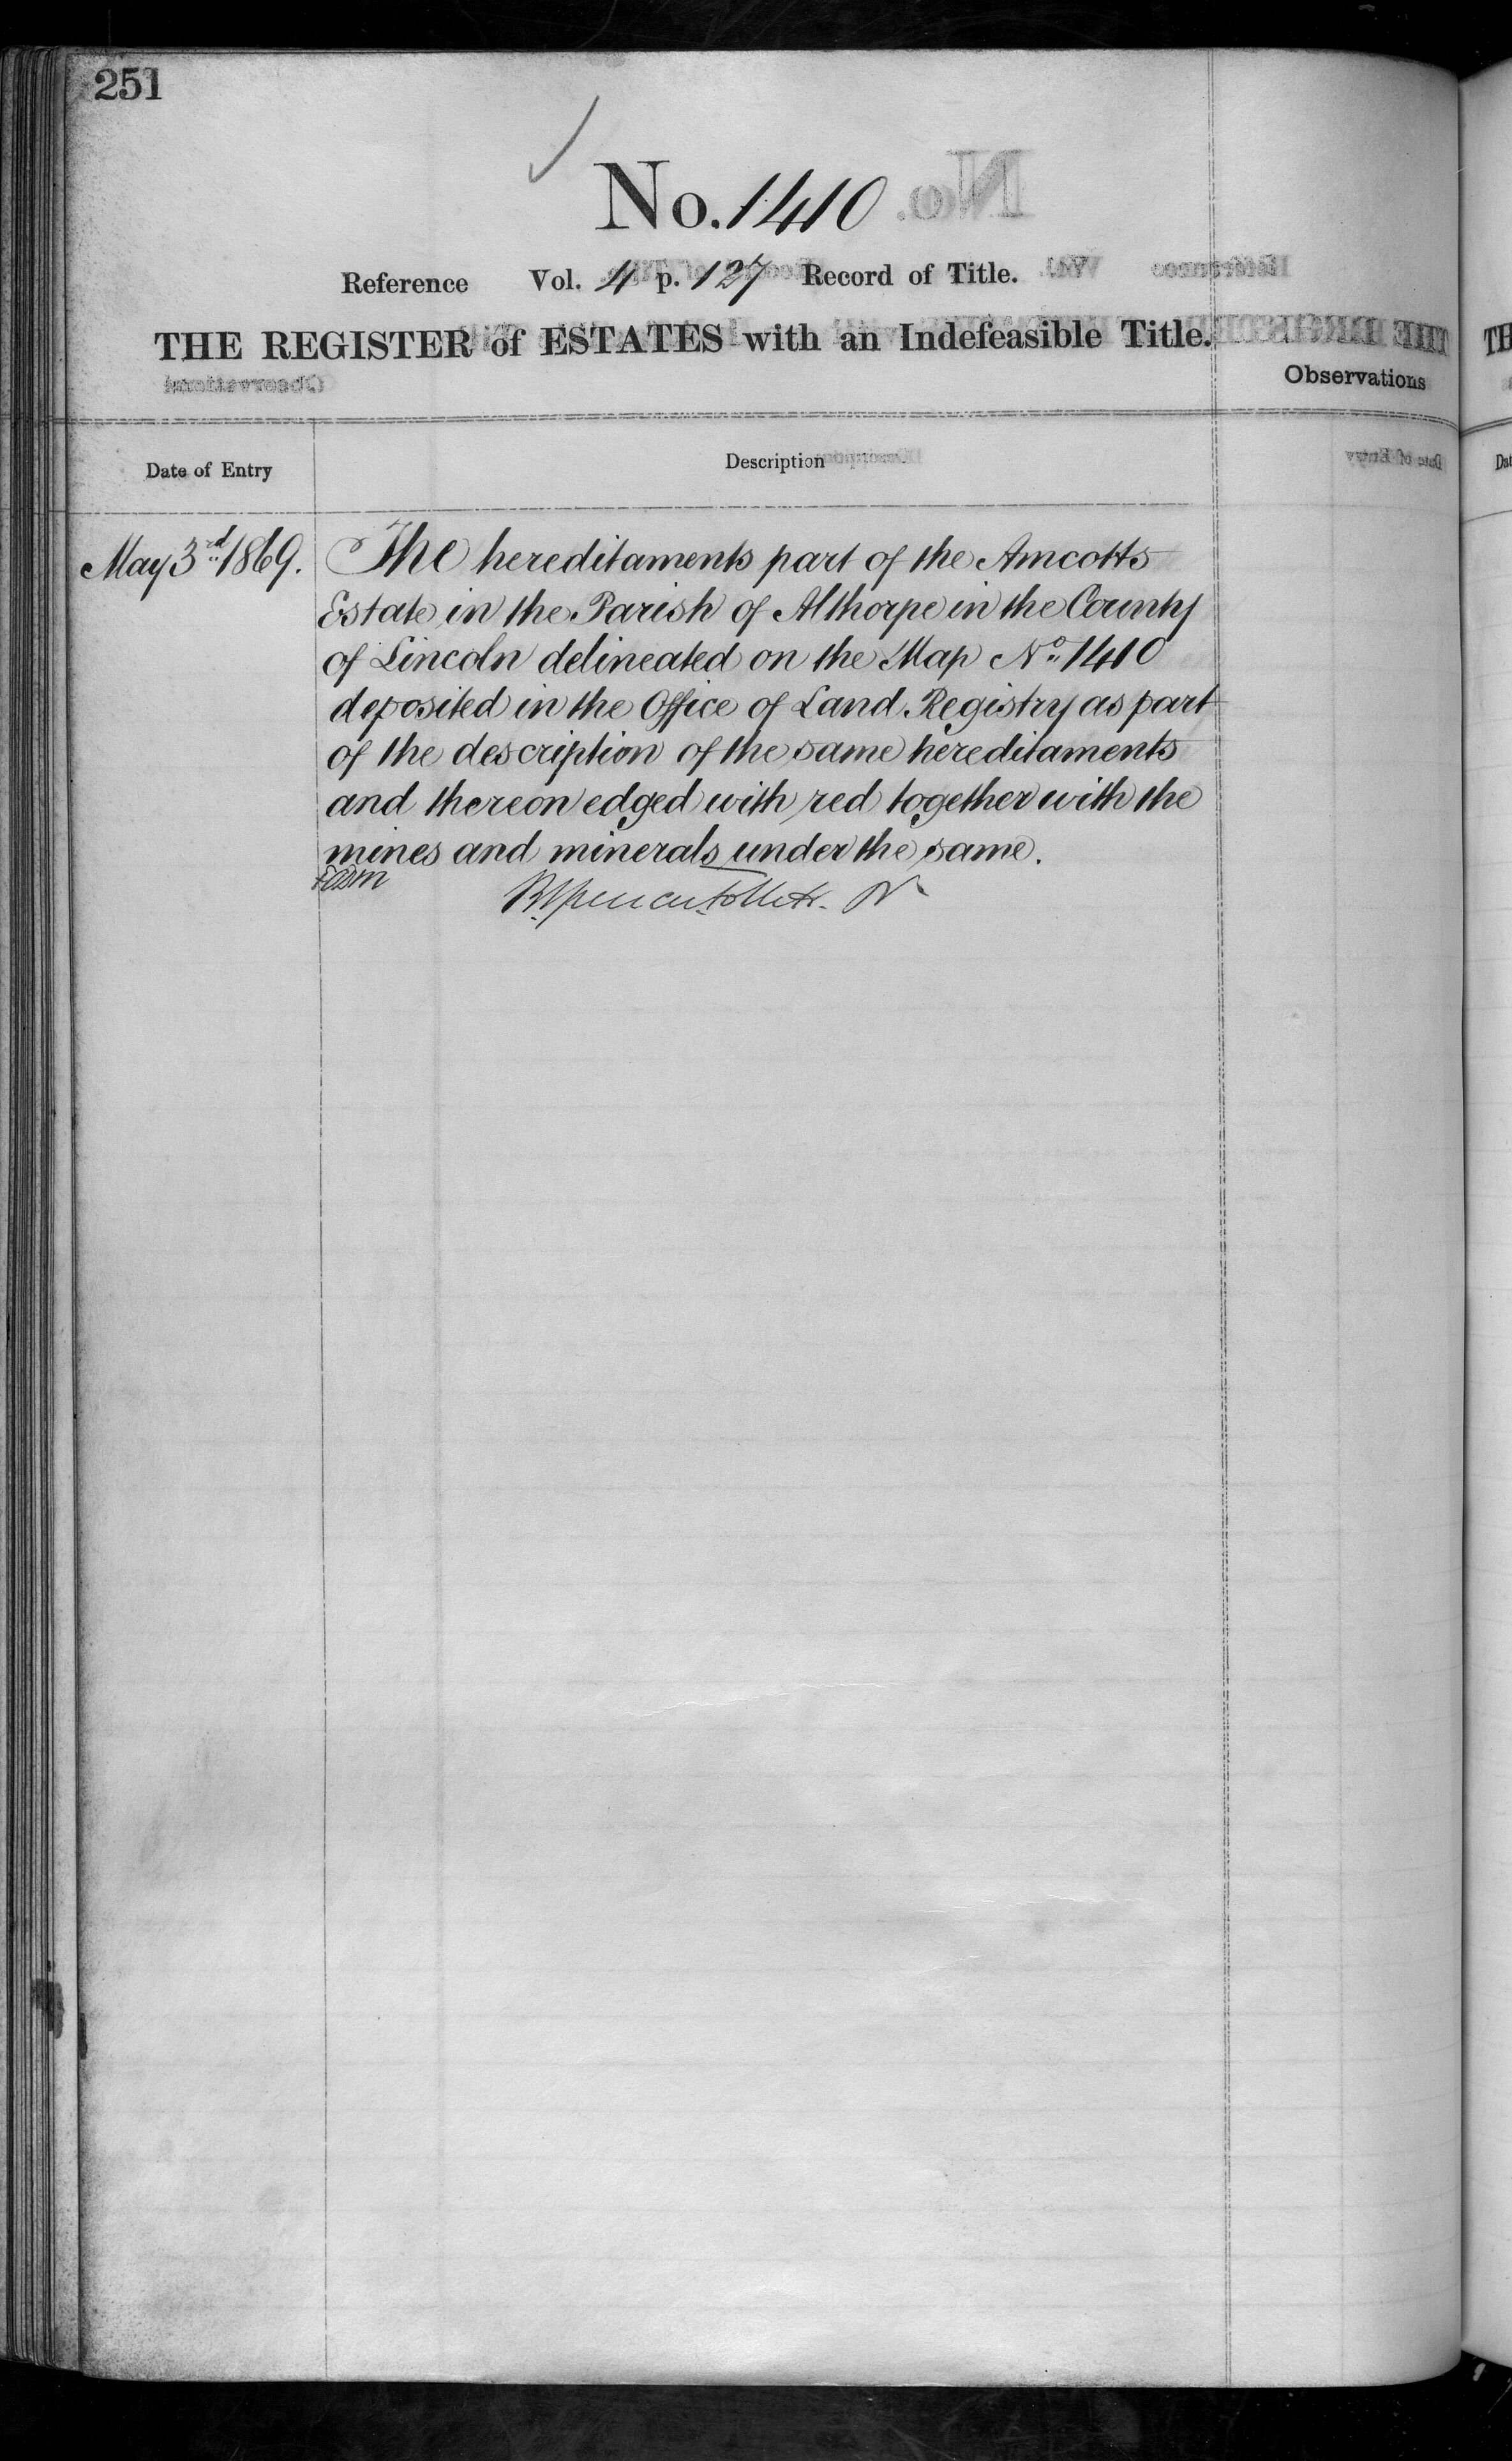 251
No. 1410
Reference Vol. 4 p. 127 Record of Title.
THE REGISTER of ESTATES with an Indefeasible Title.
Observations
Date of Entry
Description
May 3rd 1869.
The hereditaments part of the Amcotts
Estate in the Parish of Althorpe in the County
of Lincoln delineated on the Map No. 1410
deposited in the Office of Land Registry as part
of the description of the same hereditaments
and thereon edged with red together with the
mines and minerals under the same.